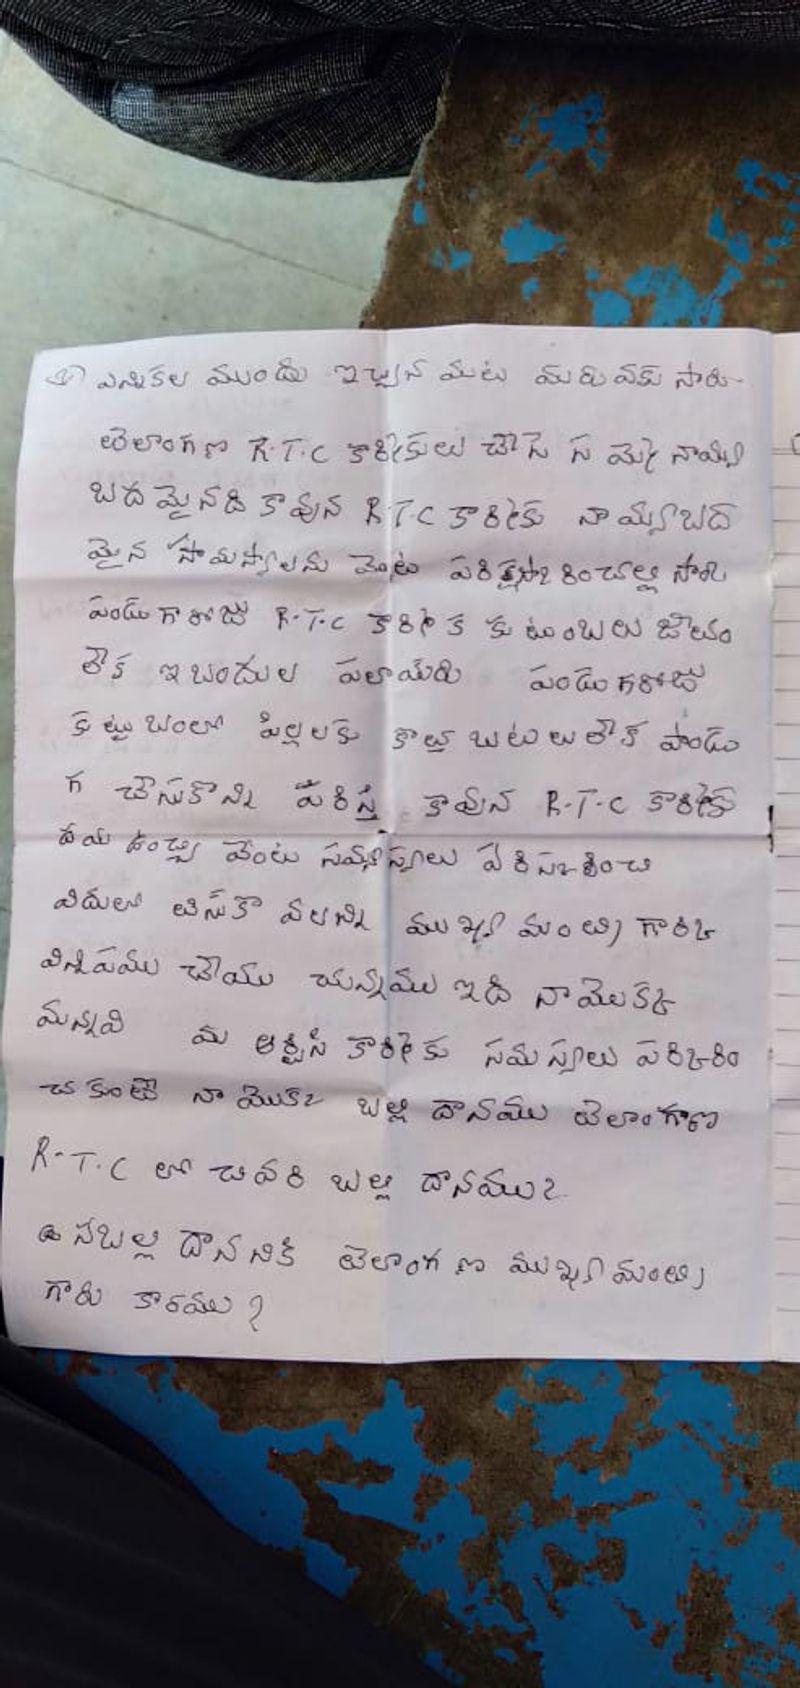 ఎన్నికల ముందు ఇచ్చన మట మరువకు సారు
తెలాంగణ R.T.C కార్మికులు చేసె స మ్మె నాయ్యి
బదమైనది కావున R.T.C కార్మికు నాయ్యబద
మైన సామస్యాలను వెంట పరిక్షారించాల్లి సారు
పండుగారోజు R.T.C కార్మిక కుటుంబలు జీతం
లేక ఇబందుల పలాయేరు పండుగరోజు
కుట్టుబంలో పిల్లలకు కొత్త బటలు లేక పాండు
గ చేసుకొన్ని పరిస్తి కావున R.T.C కార్మికు
దయ ఉంచ్చి వెంటు సమ్యాస్యలు పరిస్కరించి
విదులో తిసుకొ వలన్ని ముఖ్య మంత్రి గారికి
విన్నిపము చేయు చున్నము ఇది నామొక్క
మన్నవి మ ఆర్టిసి కార్మికు సమస్యలు పరిక్కరిం
చకుంటే నా మొక్క బల్లి దానము తెలాంగాణ
R.T.C లో చివరి బల్లి దానము?
నబల్లి దాననికి తెలాంగణ ముఖ్య మంత్రి
గారు కారము?